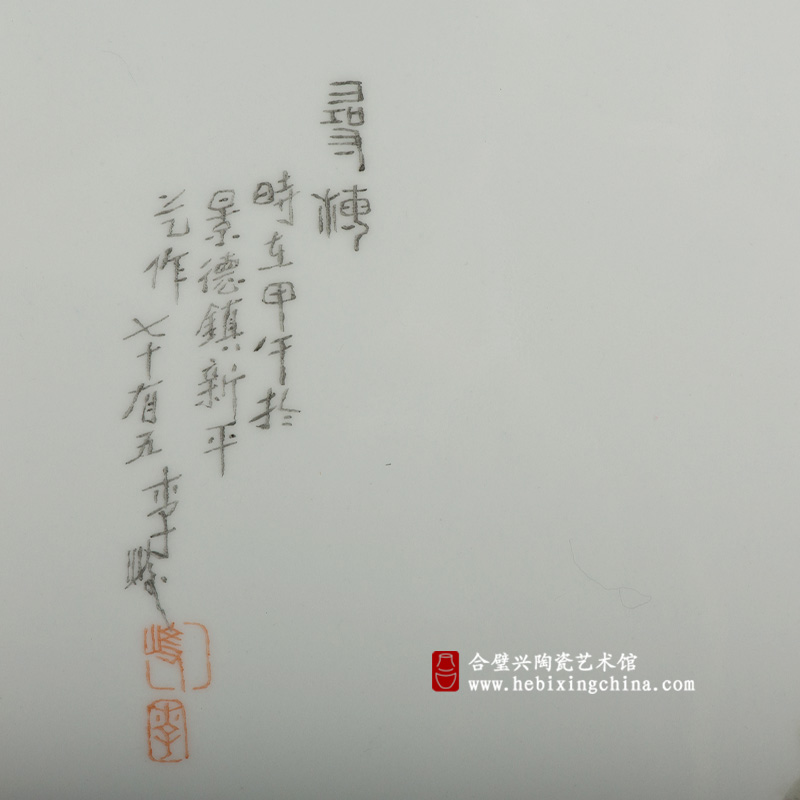 尋
時在甲午於
景德鎮新平
艺作
七十有五
李峻
峻
李
合璧兴陶瓷艺术馆
www.hebixingchina.com